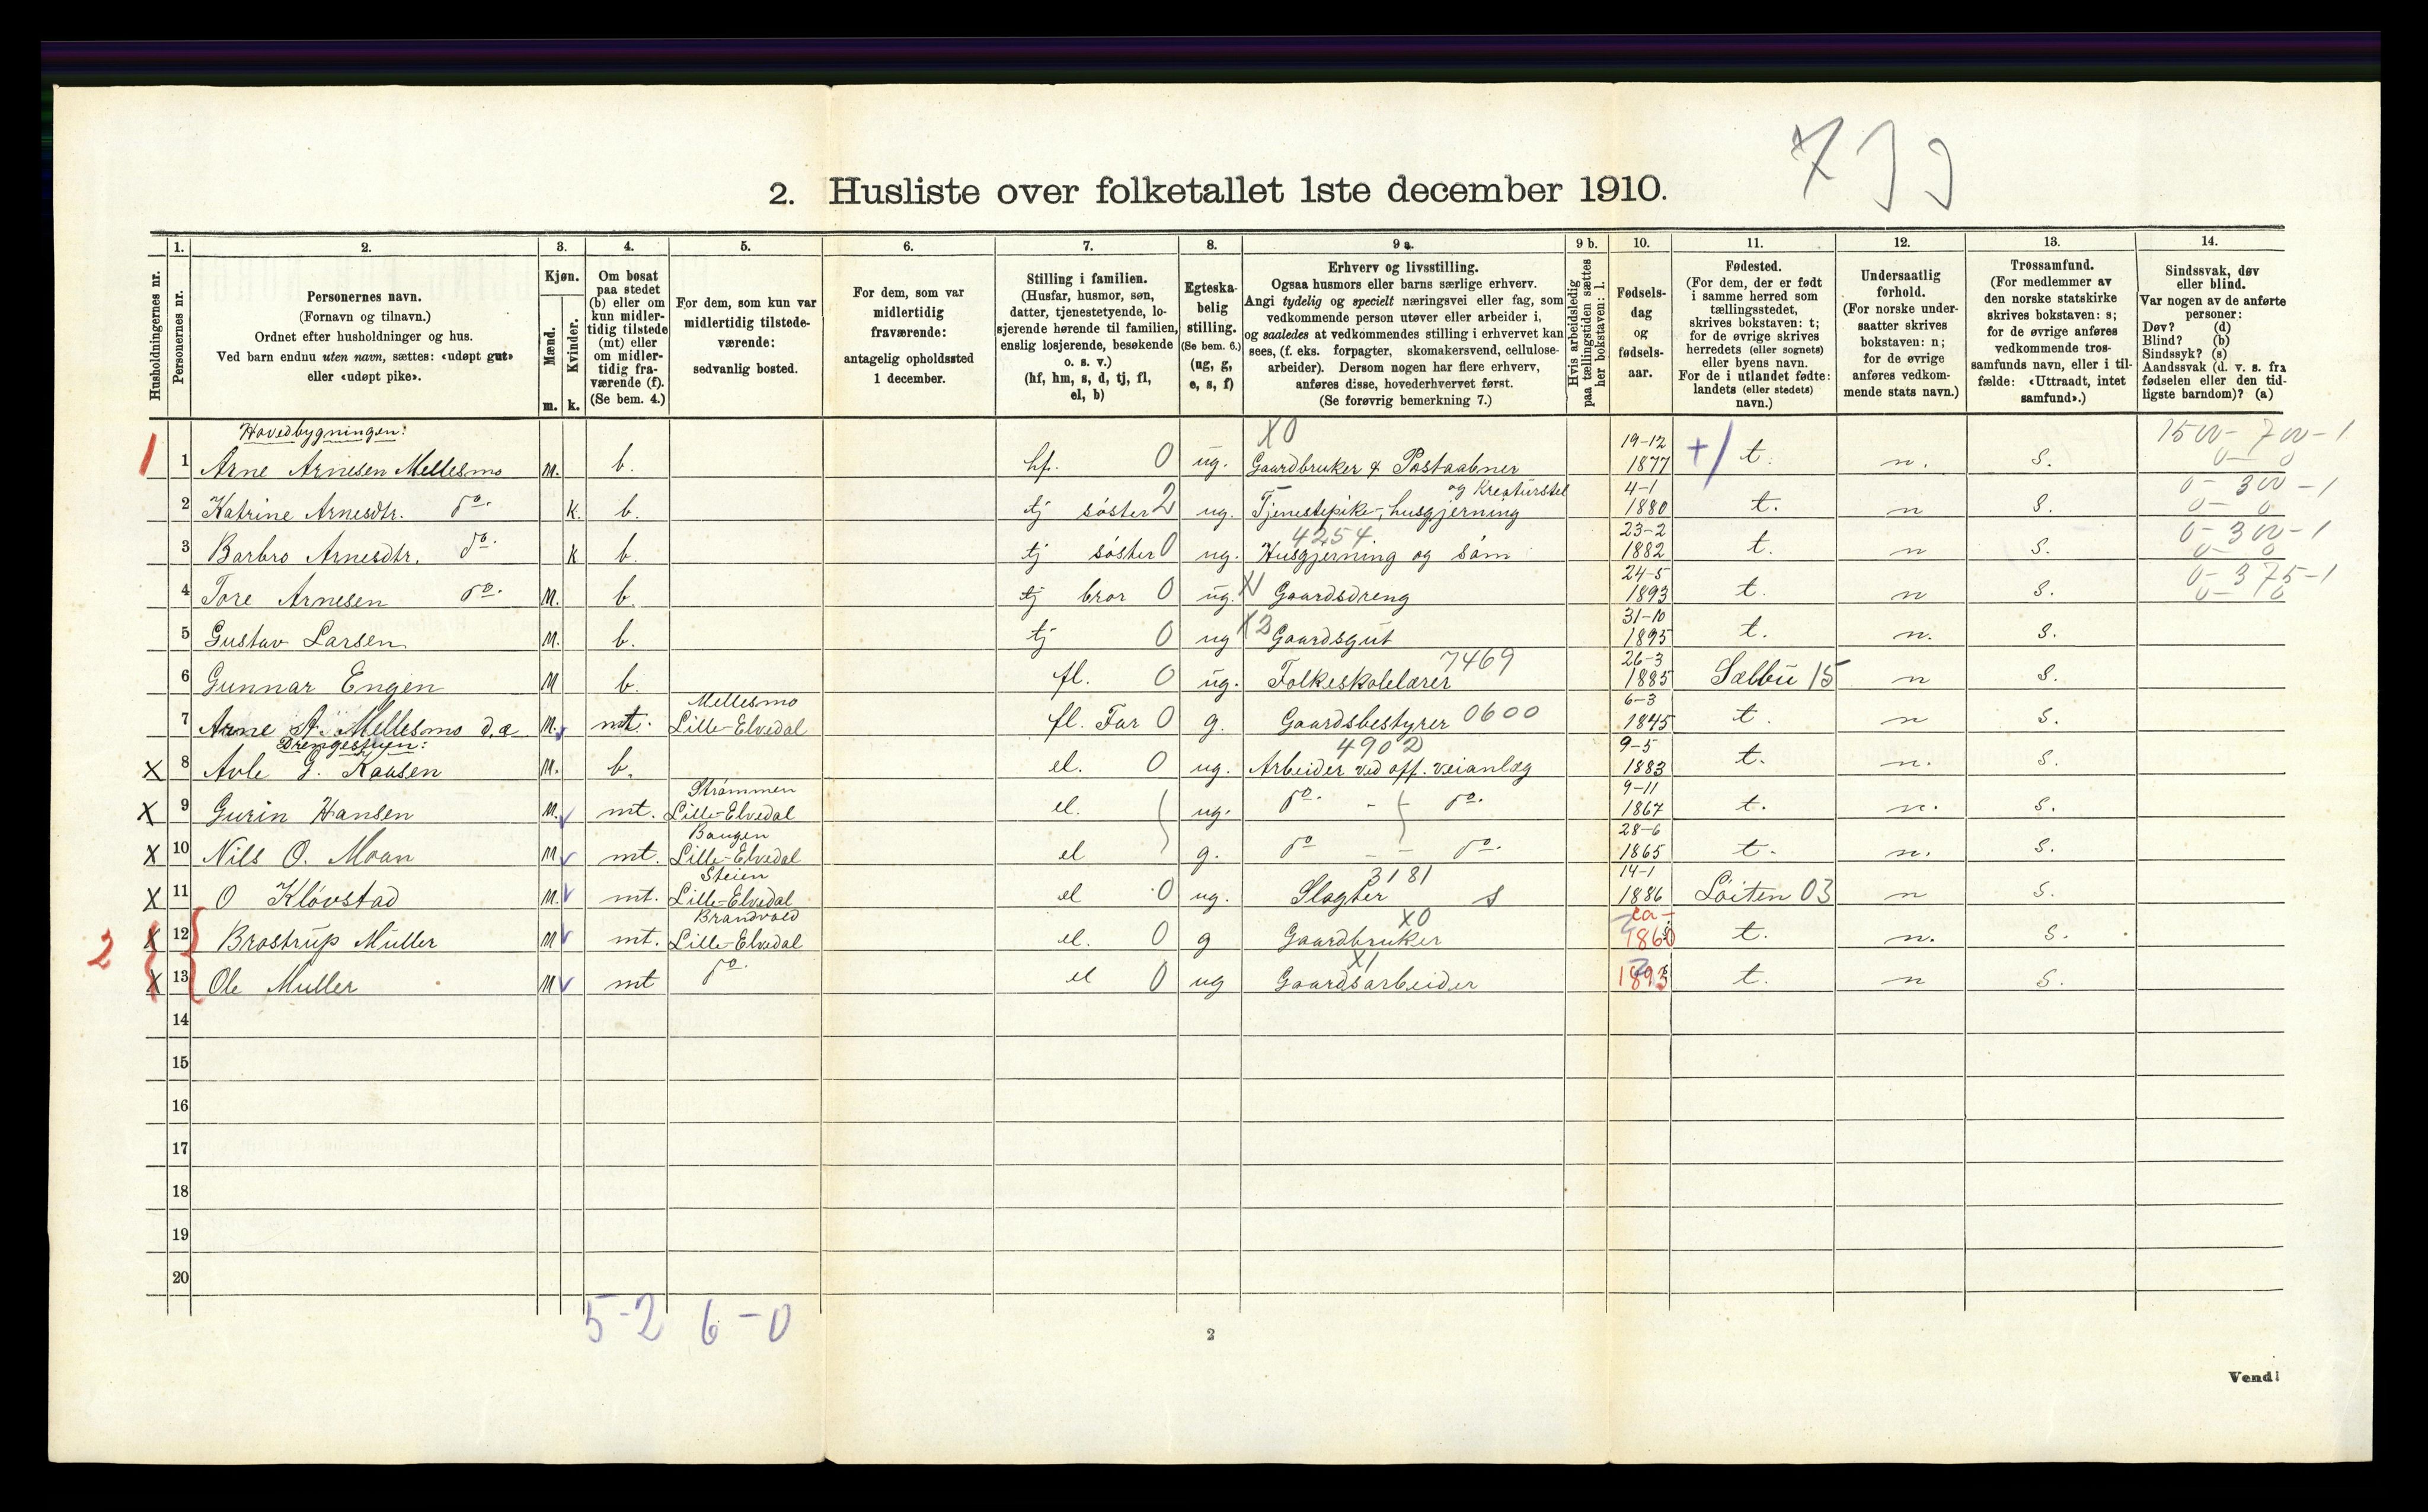 799
2. Husliste over folketallet 1ste december 1910.
Husholdningernes nr.
1.
Personernes nr.
2.
Personernes navn.
(Fornavn og tilnavn.)
Ordnet efter husholdninger og hus.
Ved barn endnu uten navn, sættes: «udøpt gut»
eller «udøpt pike».
3.
Kjøn.
Mænd.
Kvinder.
m. k.
4.
Om bosat
paa stedet
(b) eller om
kun midler-
tidig tilstede
(mt) eller
om midler-
tidig fra-
værende (f).
(Se bem. 4.)
5.
For dem, som kun var
midlertidig tilstede-
værende:
sedvanlig bosted.
6.
For dem, som var
midlertidig
fraværende:
antagelig opholdssted
1 december.
7.
Stilling i familien.
(Husfar, husmor, søn,
datter, tjenestetyende, lo-
sjerende hørende til familien,
enslig losjerende, besøkende
o. s. v.)
(hf, hm, s, d, tj, fl,
el, b)
8.
Egteska-
belig
stilling.
(Se bem. 6.)
(ug, g,
e, s, f)
9 a.
Erhverv og livsstilling.
Ogsaa husmors eller barns særlige erhverv.
Angi tydelig og specielt næringsvei eller fag, som
vedkommende person utøver eller arbeider i,
og saaledes at vedkommendes stilling i erhvervet kan
sees, (f. eks. forpagter, skomakersvend, cellulose-
arbeider). Dersom nogen har flere erhverv,
anføres disse, hovederhvervet først.
(Se forøvrig bemerkning 7.)
9 b.
Hvis arbeidsledig
paa tællingstiden sættes
her bokstaven: l.
10.
Fødsels-
dag
og
fødsels-
aar.
11.
Fødested.
(For dem, der er født
i samme herred som
tællingsstedet,
skrives bokstaven: t;
for de øvrige skrives
herredets (eller sognets)
eller byens navn.
For de i utlandet fødte:
landets (eller stedets)
navn.)
12.
Undersaatlig
forhold.
(For norske under-
saatter skrives
bokstaven: n;
for de øvrige
anføres vedkom-
mende stats navn.)
13.
Trossamfund.
(For medlemmer av
den norske statskirke
skrives bokstaven: s;
for de øvrige anføres
vedkommende tros-
samfunds navn, eller i til-
fælde: «Uttraadt, intet
samfund».)
14.
Sindssvak, døv
eller blind.
Var nogen av de anførte
personer:
Døv? (d)
Blind? (b)
Sindssyk? (s)
Aandssvak (d. v. s. fra
fødselen eller den tid-
ligste barndom)? (a)
Hovedbygningen: X0 19-12 1500- 700-1
1 1 Arne Arnesen Mellesmo M. b. hf. 0 ug. Gaardbruker & Postaabner 1877 t. n. S. 0- 0
og Kreaturstel 4-1 0- 300-1
2 Katrine Arnesdtr. do. K. b. tj søster 2 ug. Tjenestepike-, husgjerning 1880 t. n S. 0- 0
4254 23-2 0- 300-1
3 Barbro Arnesdtr. do. K b. tj søster 0 ug. Husgjerning og søm 1882 t. n S. 0- 0
24-5 0- 375-1
4 Tore Arnesen do. M. b. tj bror 0 ug. X1 Gaardsdreng 1893 t. n S. 0- 0
31-10
5 Gustav Larsen M. b. tj 0 ug X3 Gaardsgut 1895 t. n. S.
7469 26-3
6 Gunnar Engen M b. fl. 0 ug. Folkeskolelærer 1885 Sælbu 15 n S.
Mellesmo 6-3
7 Arne A. Mellesmo d.æ. M. mt. Lille-Elvedal fl. Far 0 g. Gaardsbestyrer 0600 1845 t. n S.
Drengestuen: 4902 9-5
X 8 Avle G. Kaasen M. b. el. 0 ug. Arbeider ved off. veianlæg 1883 t. n. S.
Strømmen 9-11
X 9 Gurin Hansen M. mt. Lille-Elvedal el. ug. do. - - do. 1867 t. n. S.
Baugen 28-6
X 10 Nils O. Moan M mt. Lille-Elvedal el g. do - - do. 1865 t. n. S.
Steien 3181 14-1
X 11 O Kløvstad M. mt. Lille-Elvedal el 0 ug. Slagter s 1886 Løiten 03 n S.
Brandvold X0 ca-
2 X 12 Brostrup Müller M mt. Lille-Elvedal el. 0 g Gaardbruker 1860 t. n. S.
X1
X 13 Ole Muller M mt do. el 0 ug Gaardsarbeider 1893 t. n S.
14
15
16
17
18
19
20
5-2 6-0
2
Vend!